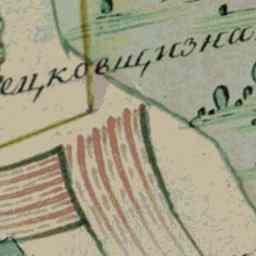 ецковщизна